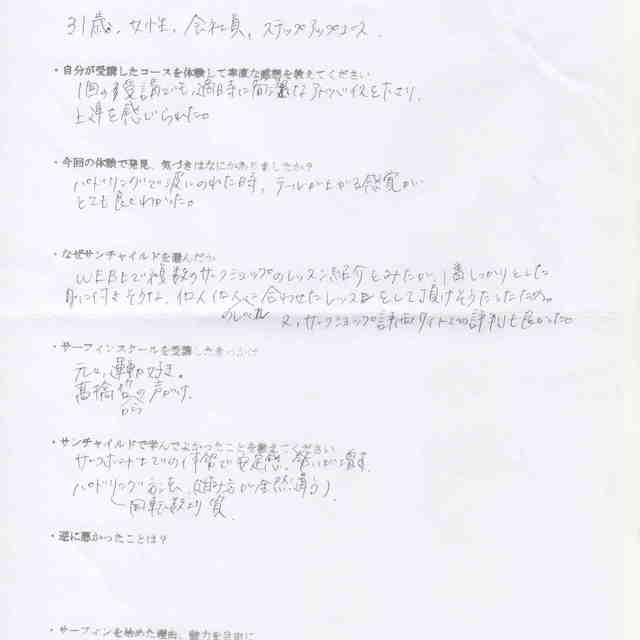 31歳、女性、会社員、ステップアップコース.
・自分が受講したコースを体験して率直な感想を教えてください
1回の受講でも、適時に最適なアドバイスをたまわり、
上達を感じられた。
・今回の体験で発見、気づきはなにかありましたか？
パドリングで波にのれた時、テールが上がる感覚が
とても良くわかった。
・なぜサンチャイルドを選んだか
WEB上で複数のサーフショップのレッスン紹介をみたが、1番しっかりとした
身に付きそうな、個人個人に合わせたレッスンをして頂けそうだったため。
のレベル
又、サーフショップ評価サイトでの評判も良かった。
・サーフィンスクールを受講したきっかけ
元々、運動好き。
からの声がけ
・サンチャイルドで学んでよかったことを教えてください
サーフボード上での
パドリング 進み方が全然違う
回転数より質
・逆に悪かったことは？
・サーフィンを始めた理由、魅力を自由に